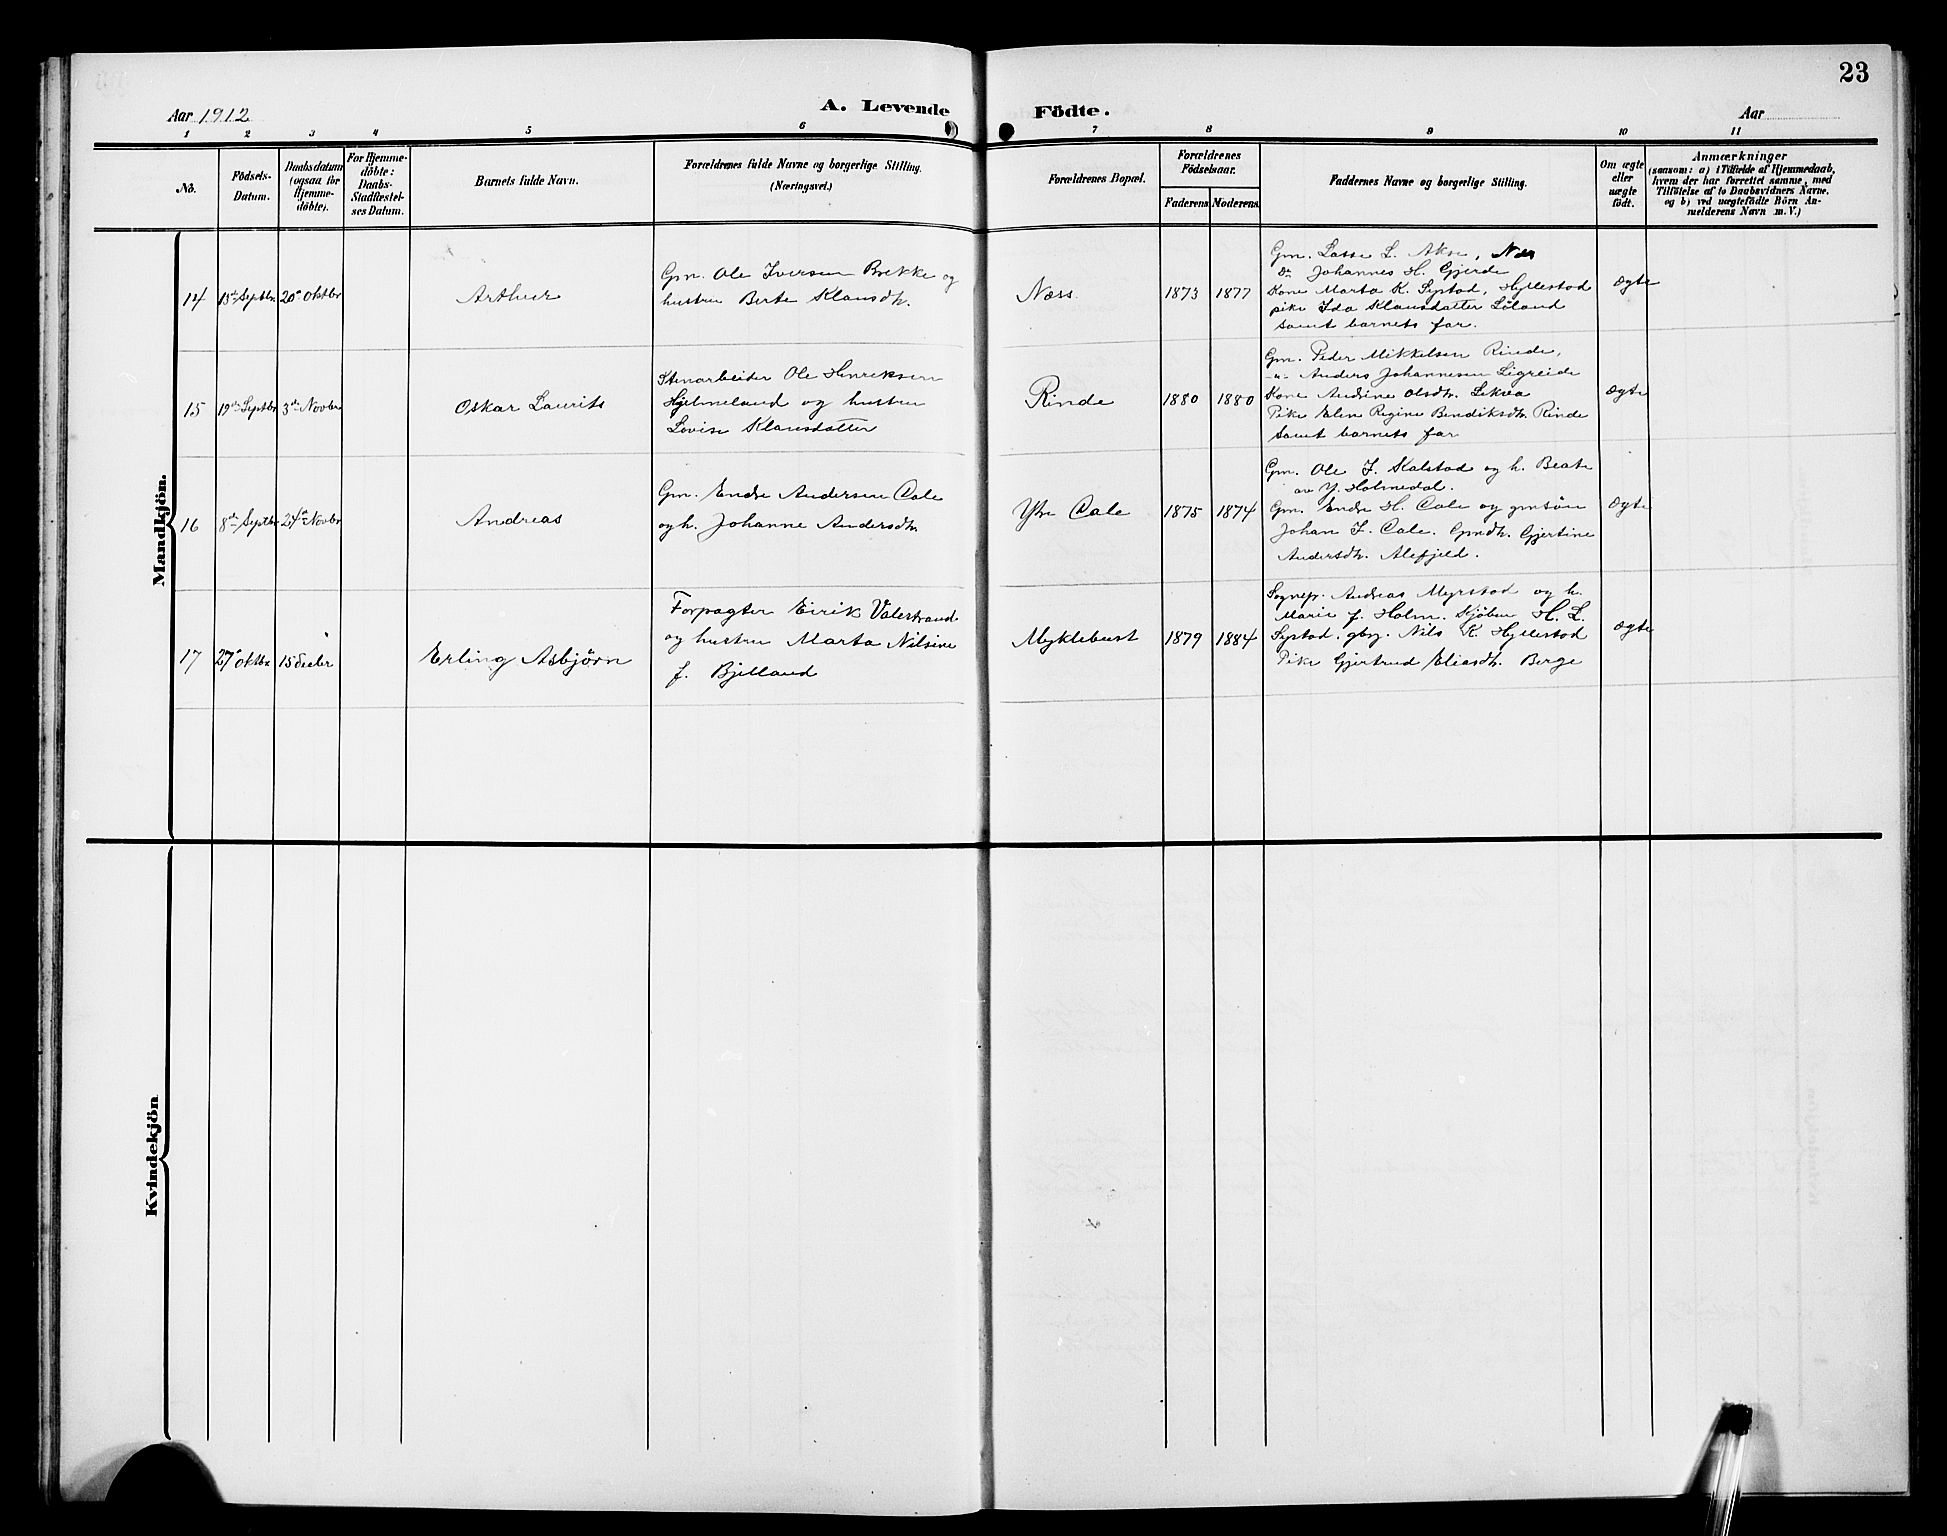 23
Aar 1912
A. Levende Födte.
Aar
1 2 3 4 5 6 7 8 9 10 11
No.
Födsels-
Datum.
Daabsdatum
(ogsaa for
Hjemme-
döbte).
For Hjemme-
döbte:
Daabs-
Stadfæstel-
ses Datum.
Barnets fulde Navn.
Forældrenes fulde Navne og borgerlige Stilling.
(Næringsvei.)
Forældrenes Bopæl.
Forældrenes
Födselsaar.
Faderens
Moderens
Faddernes Navne og borgerlige Stilling.
Om ægte
eller
uægte
födt.
Anmærkninger
(saasom: a) i Tilfælde af Hjemmedaab,
hvem der har forrettet samme, med
Tilföielse af to Daabsvidners Navne,
og b) ved uægtefödte Börn An-
melderens Navn m. V.)
Mandkjön.
14
15de Septbr
20de Oktbr
Arthur
Gm. Ole Iversen Brekke og
hustru Berte Klausdtr.
Næss
1873
1877
Gm. Lasse L. Akse, Næs
Do Johannes H. Gjerde
Kone Marta K. Systad, Hyllestad
pike Ida Klausdatter Løland
samt barnets far.
Ægte
15
19de Septbr
3de Novbr
Oskar Laurits
Stenarbeider Ole Henriksen
Hjelmeland og hustru
Lovise Klausdatter
Rinde
1880
1880
Gm. Peder Mikkelsen Rinde,
-"- Anders Johannesen Ligreide
Kone Andrine Olsdtr. Lekva
Pike Elen Regine Bendiksdtr. Rinde
samt barnets far
Ægte
16
8de Septbr
24de Novbr
Andreas
Gm. Endre Andersen Cale
og h. Johanne Andersdtr.
Ytre Cale
1875
1874
Gm. Ole I. Kalstad og h. Beate
av Y. Holmedal.
Gm. Endre H. Cale og gmsøn
Johan I. Cale. Gmdtr. Gjertine
Andersdtr. Alefjeld.
Ægte
17
27de Oktbr
15 Decbr
Erling Asbjørn
Forpagter Eirik Valestrand
og hustru Marta Nilsine
f. Bjelland
Myklebust
1879
1884
Sognep. Andreas Myrstad og h.
Marie f. Holm. Kjøbm H. L.
Systad. gbr. Nils K. Hyllestad
Pike Gjertrud Eliasdtr. Berge
Ægte
Kvindekjön